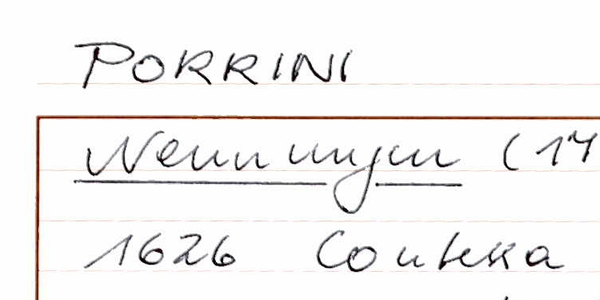 PORRINI
Nennungen (17
1626 Contessa